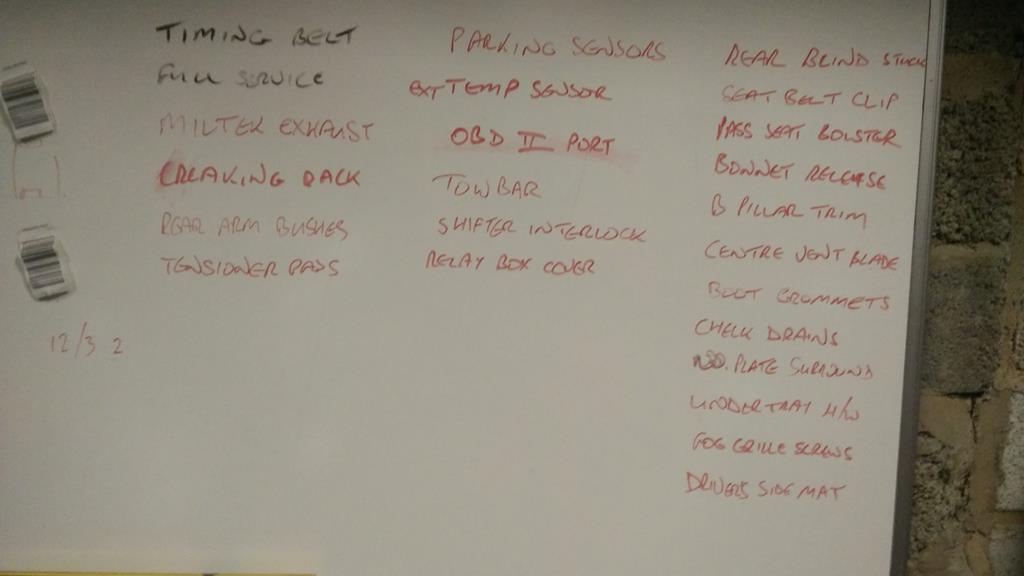 TIMING BELT
FULL SERVICE
MILTEK EXHAUST
CREAKING RACK
REAR ARM BUSHES
TENSIONER PADS
12/3 2
PARKING SENSORS
EXT TEMP SENSOR
OBD II PORT
TOWBAR
SHIFTER INTERLOCK
RELAY BOX COVER
REAR BLIND STUCK
SEAT BELT CLIP
PASS SEAT BOLSTER
BONNET RELEASE
B PILLAR TRIM
CENTRE VENT BLADE
BOOT GROMMETS
CHECK DRAINS
NO. PLATE SURROUND
UNDERTRAY H/W
FOG GRILLE SCREWS
DRIVERS SIDE MAT